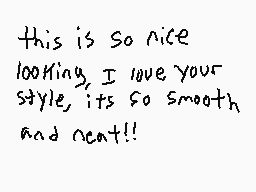 this is so nice
looking, I love your
style, its so smooth
and neat!!